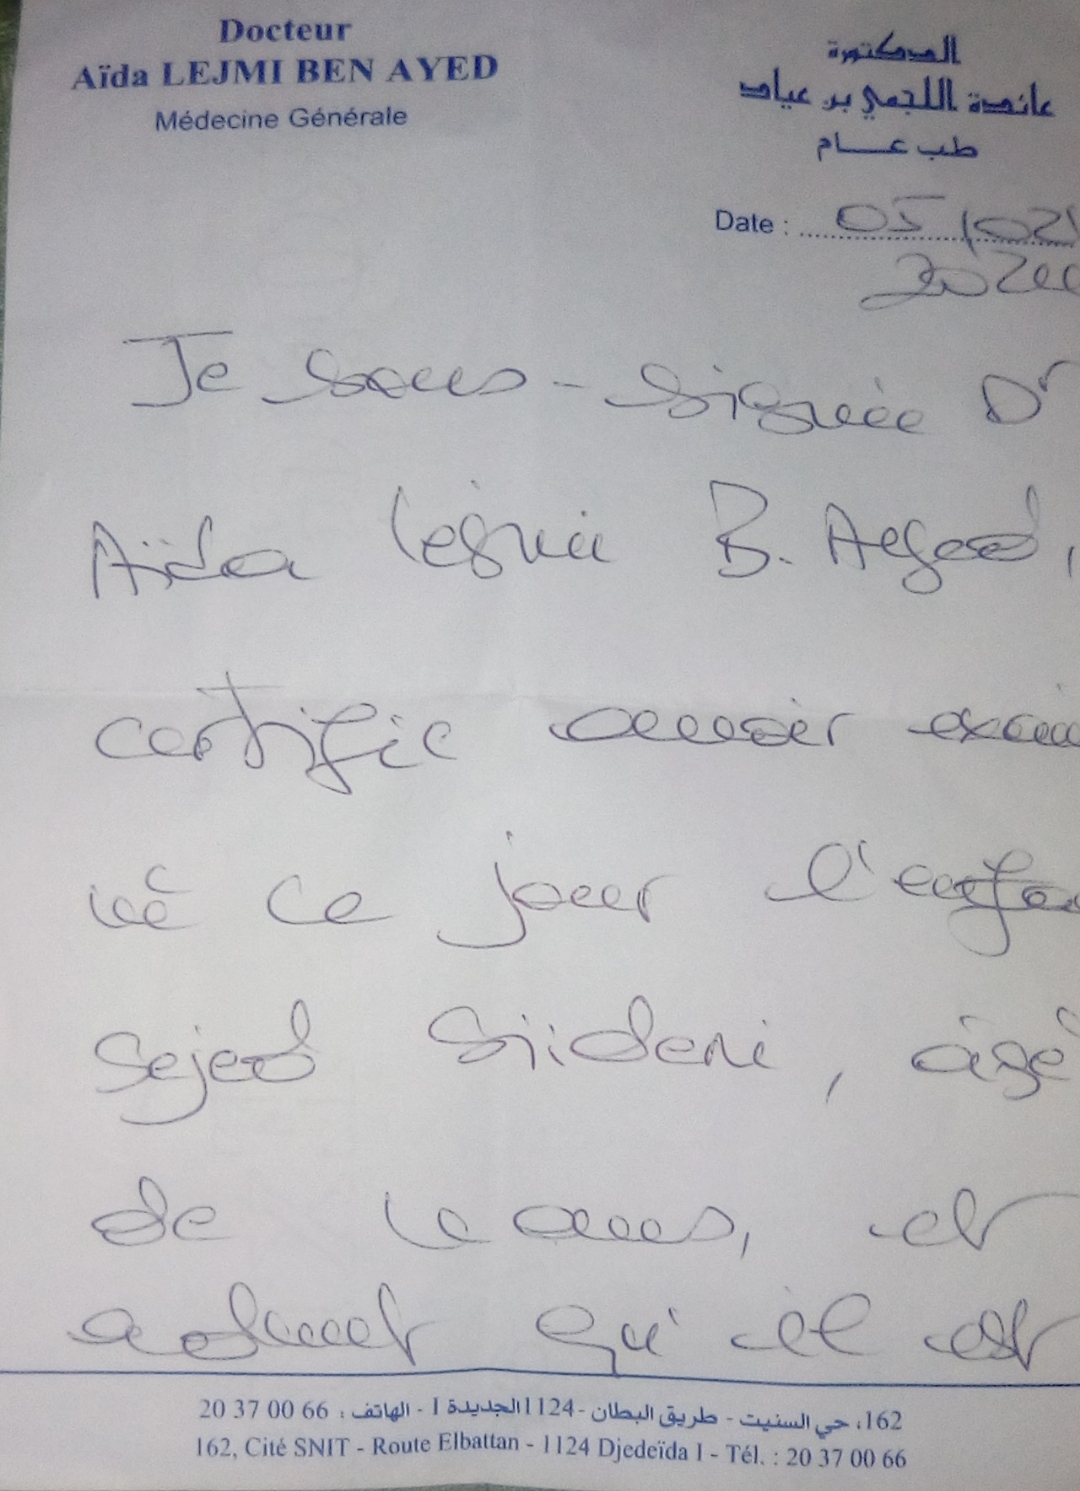 Docteur
Aïda LEJMI BEN AYED
Médecine Générale
الدكتورة
عائدة اللجمي بن عياد
طب عام
Date : 05/02/
Je sous-signée Dr
Aïda Lejmi B. Ayed,
certifie avoir exami
né ce jour l'enfa
Sejed, âgé
de ans, et
qu'il est
162، حي السنيت - طريق البطان -1124 الجديدة I - الهاتف : 66 00 37 20
162, Cité SNIT - Route Elbattan - 1124 Djedeïda I - Tél. : 20 37 00 66